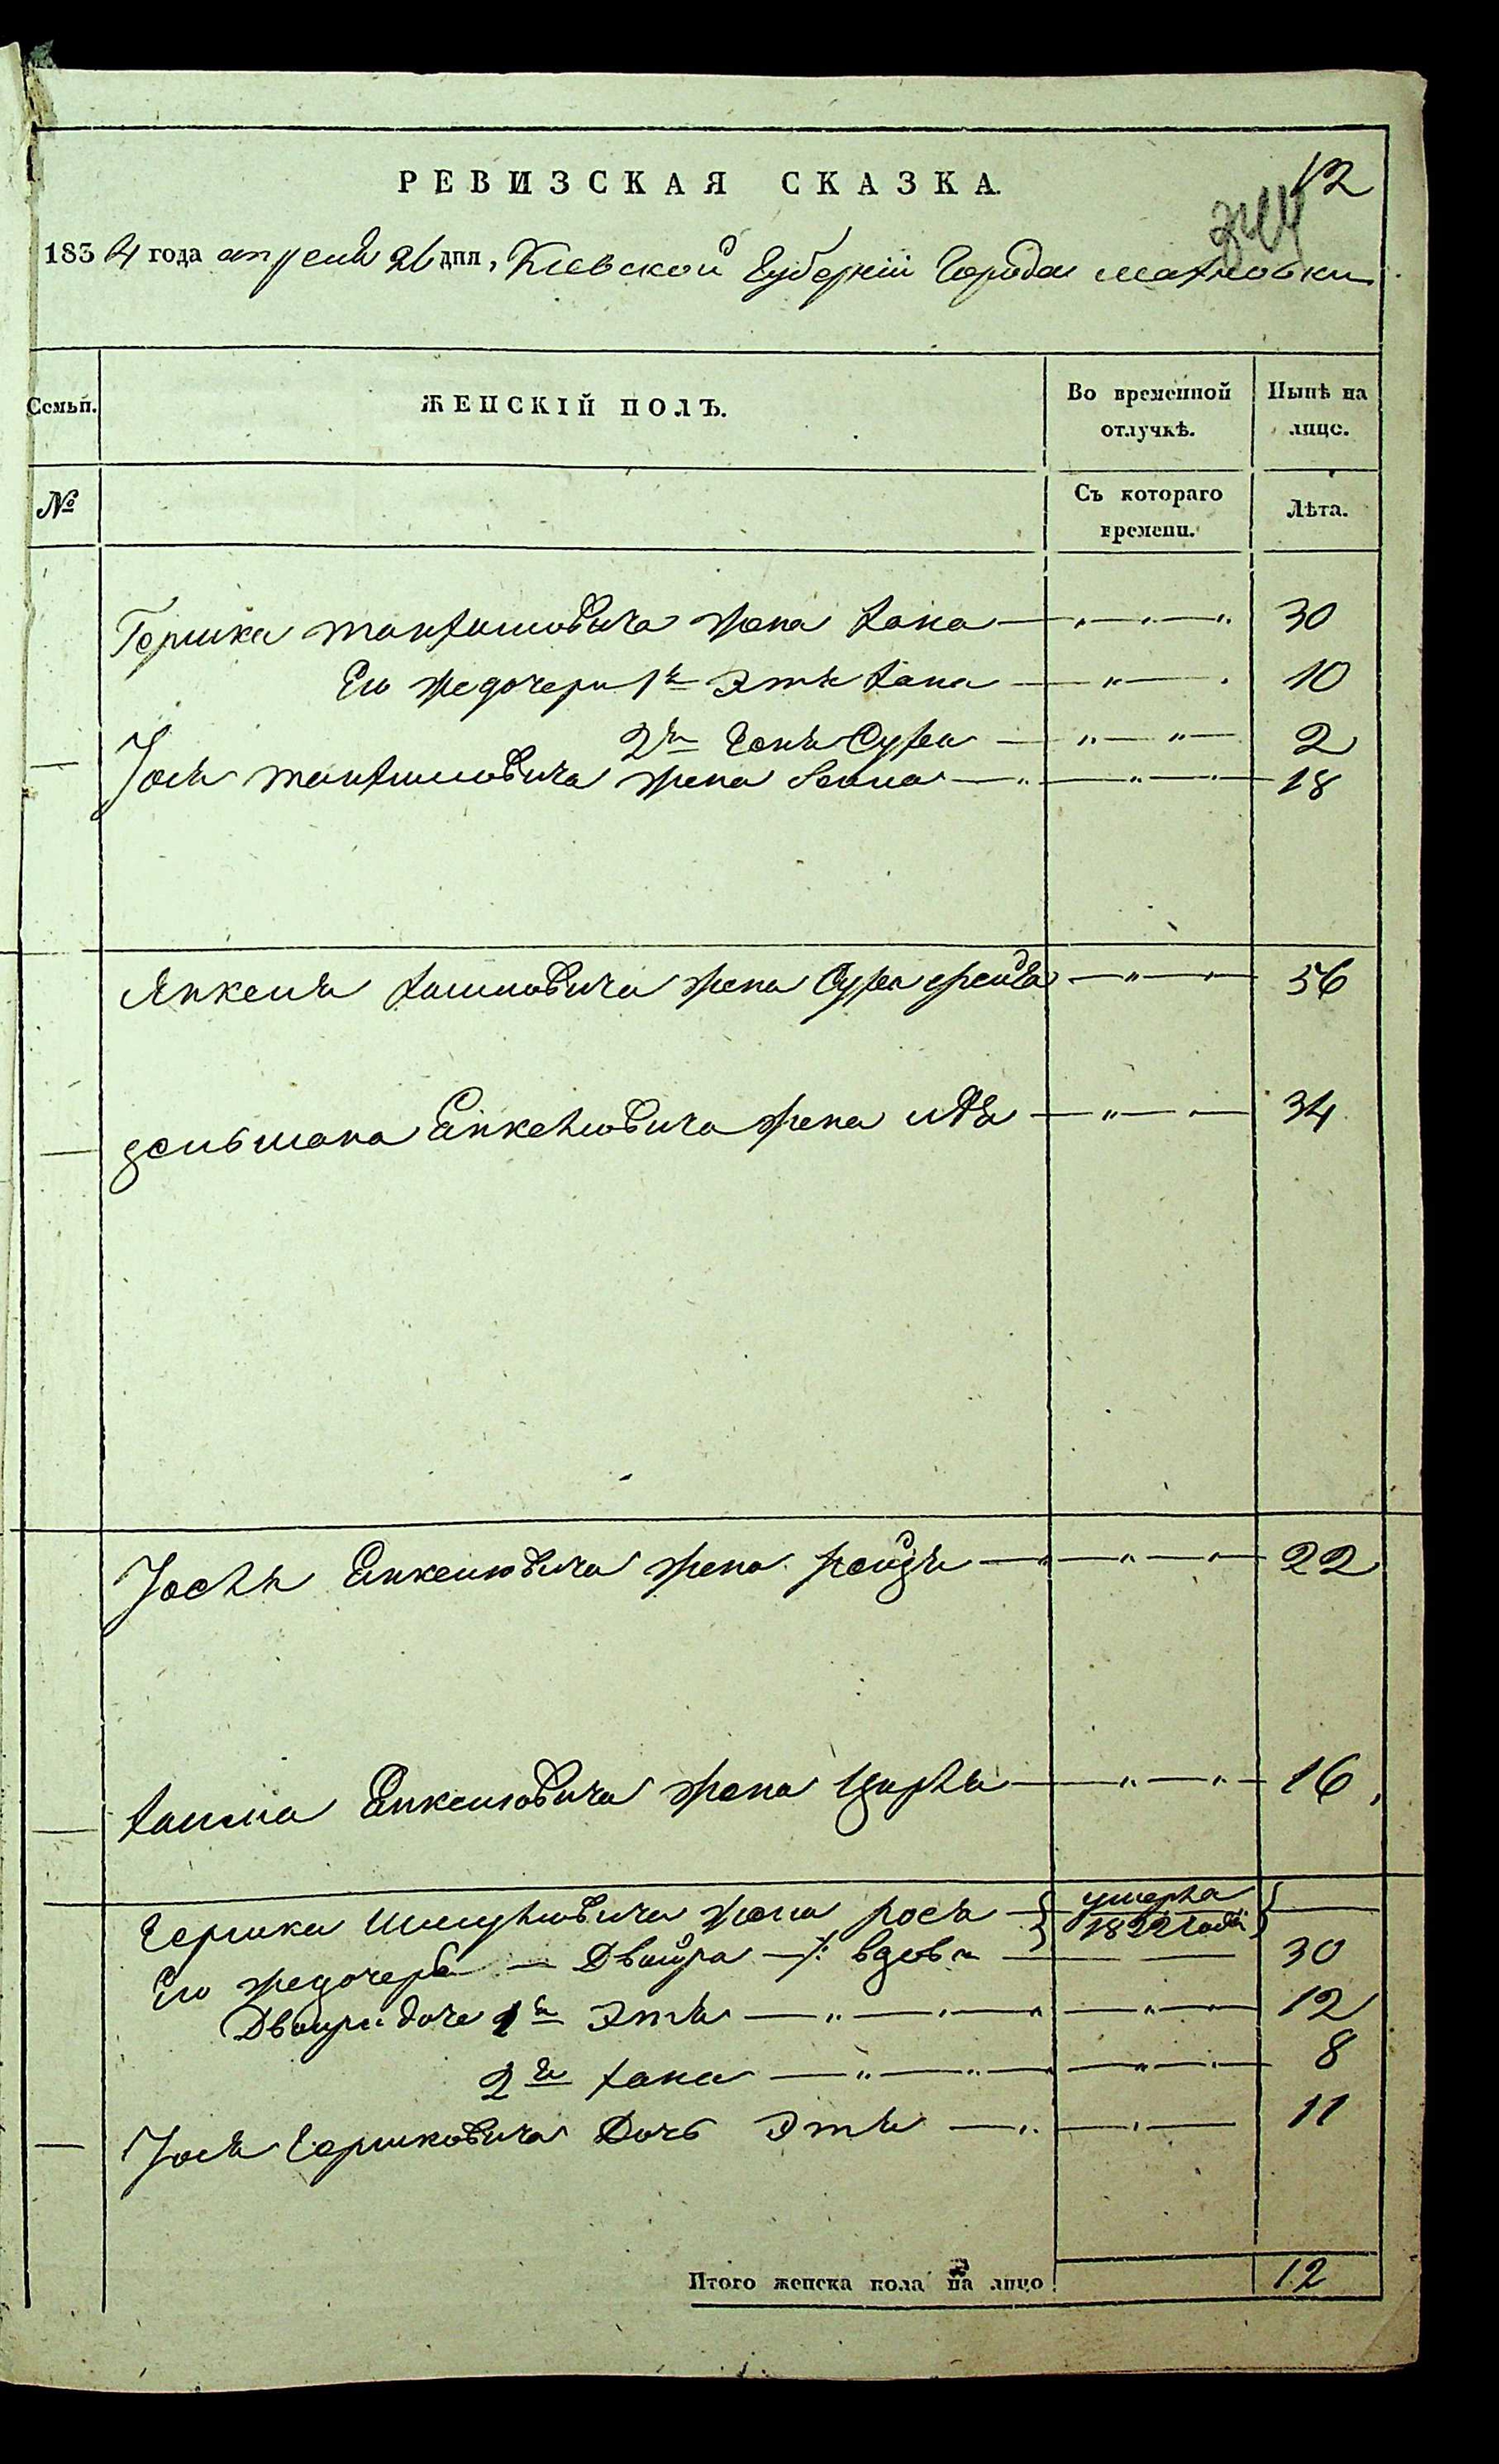 РЕВИЗСКАЯ СКАЗКА.
12
1834 года апреля 26 дня, Киевской Губернии Города Махновки
Семьи.
ЖЕНСКІЙ ПОЛЪ.
Во временной отлучкѣ.
Нынѣ на лице.
№
Съ котораго времени.
Лѣта.
Гершка жена хана 30
Его же дочери 1я Этя хана 10
2я Сура 2
Іося жена 18
Янкеля хаимовича жена Сура фейга 56
зельмана Енкелювича жена 34
Іосля Енкелювича жена рейзя 22
хаима Енкелювича жена Цирля 16
Гершка Шмулювича жена рося умерла 1822 года
Его же дочерь Двойра вдова 30
Двойри дочь 1я Этя 12
2я хана 8
Іося Гершковича Дочь Этя 11
Итого женска пола на лицо 12